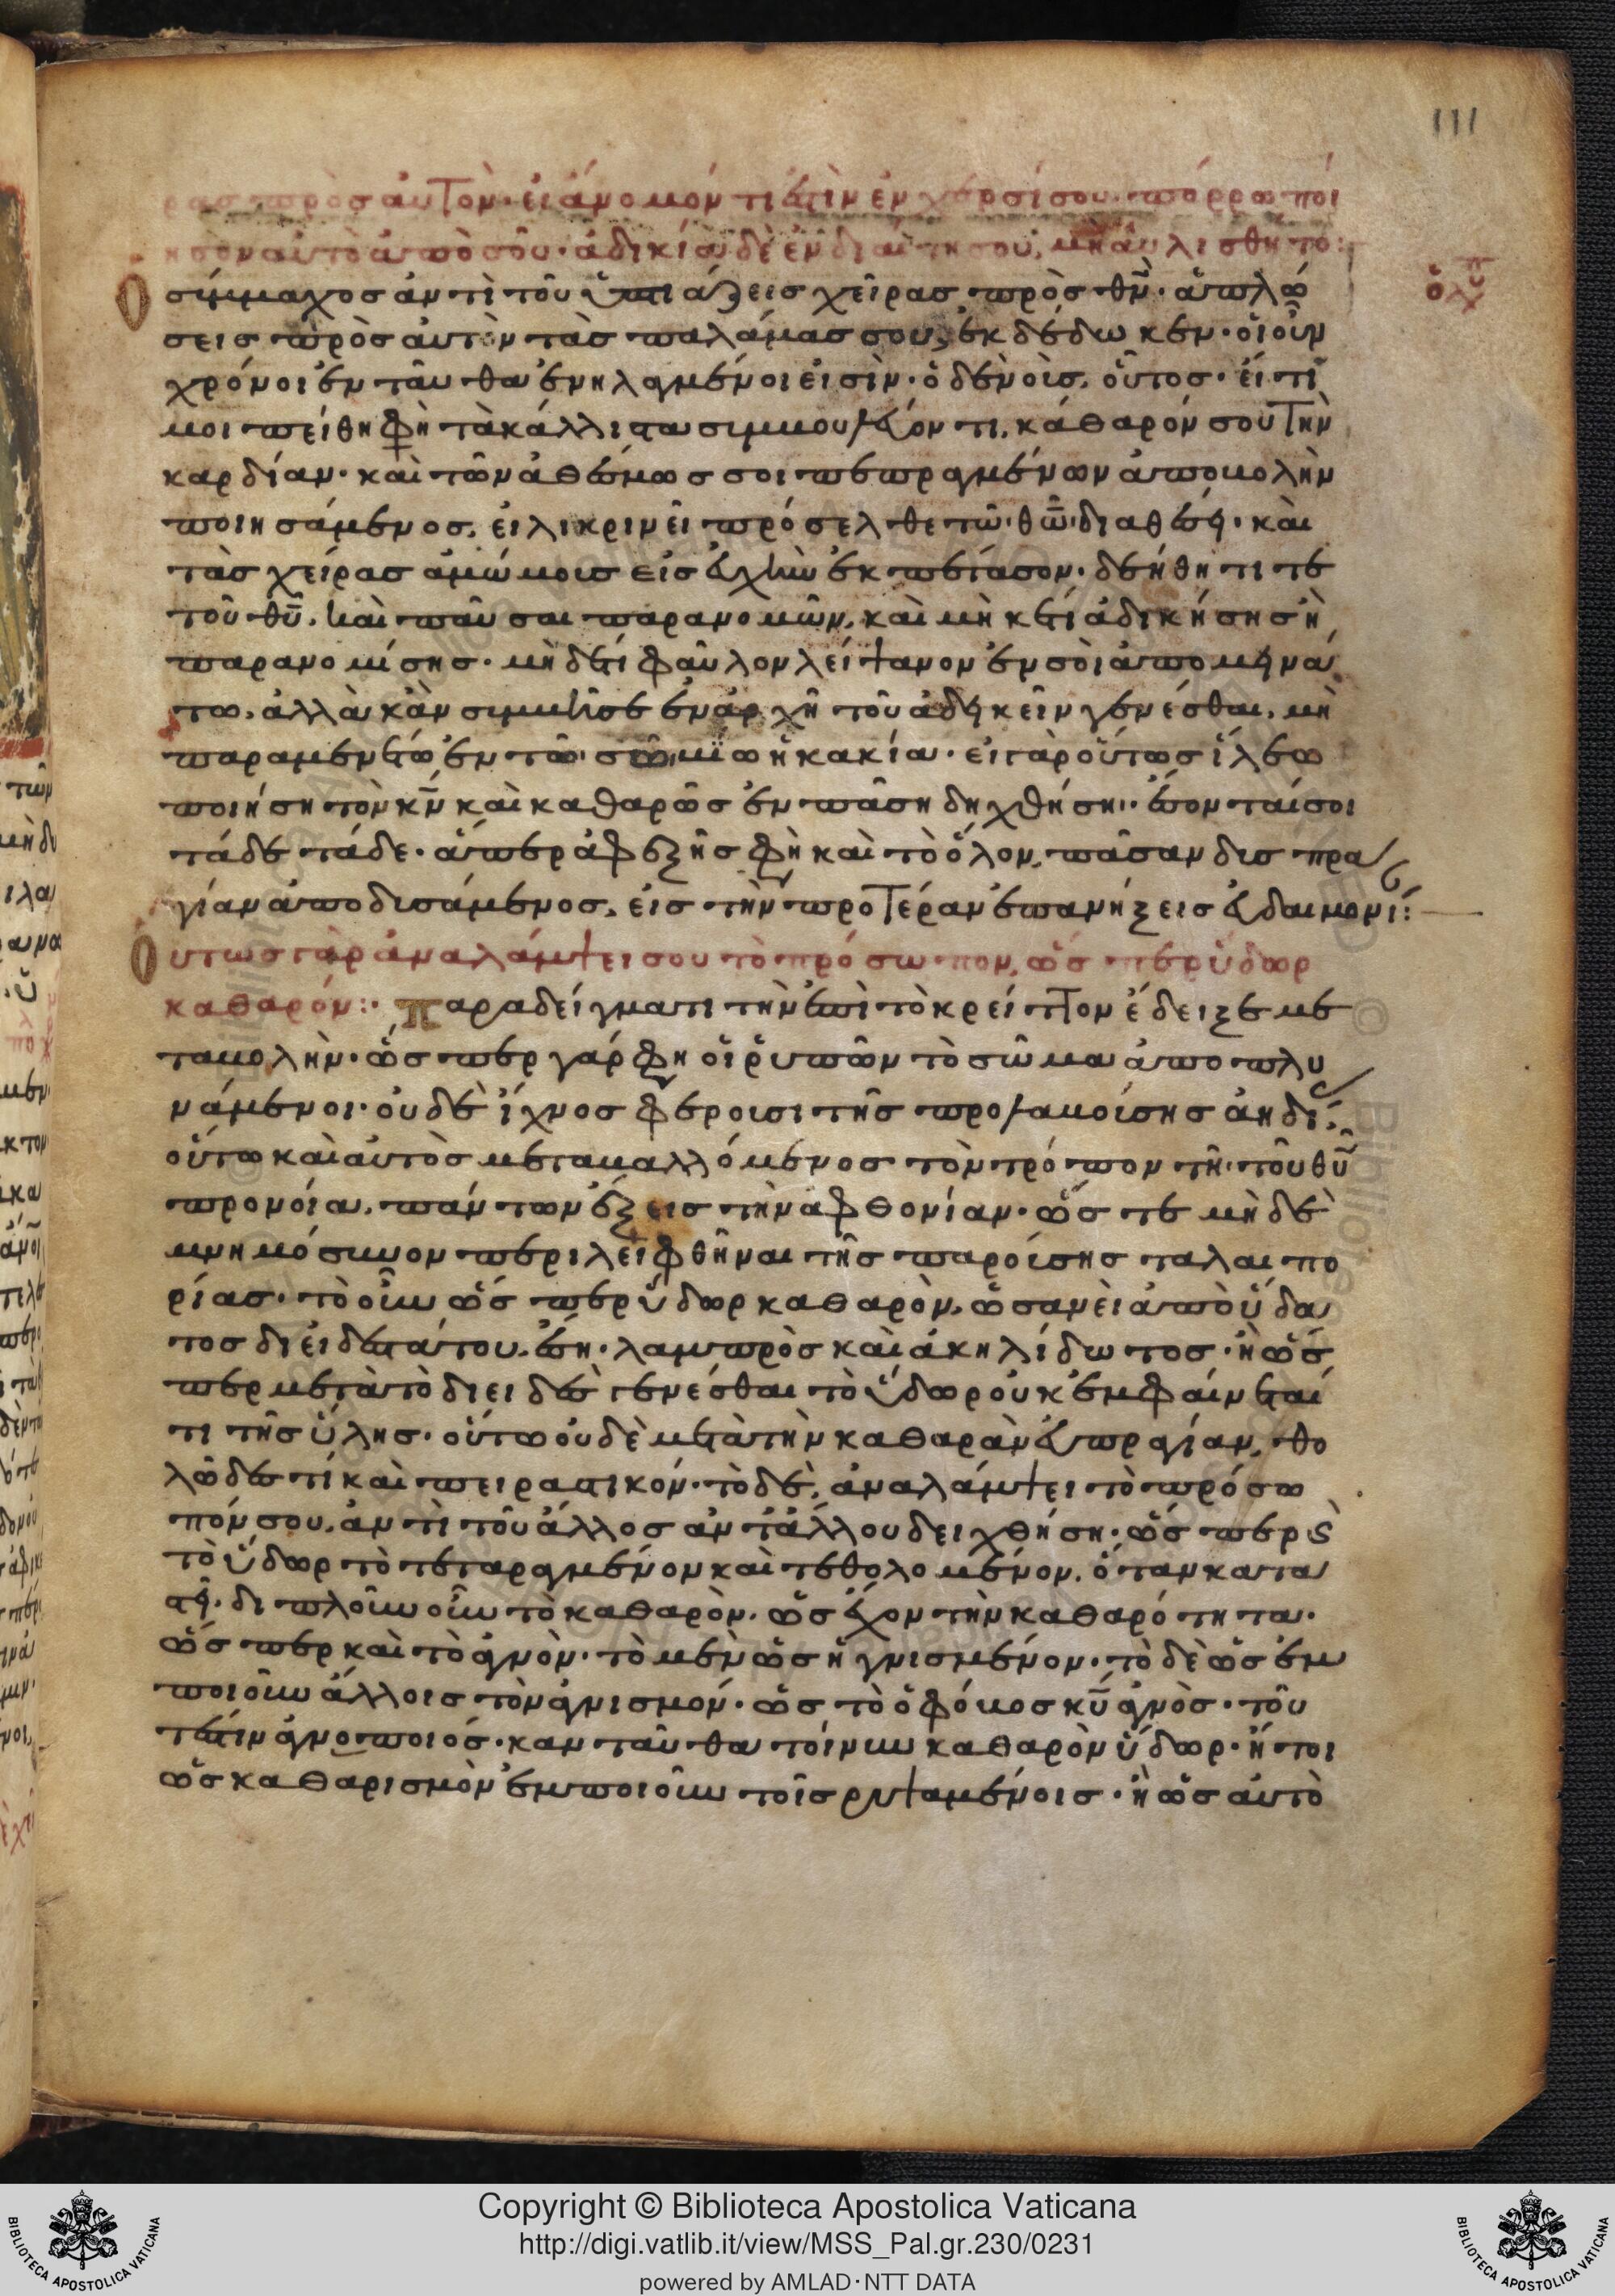 111
ρασ πρὸσ αὐτὸν· εἰ ἄνομόν τι ἐστὶν ἐν χερσί σου· πόρρω ποί
ησον αὐτὸ ἀπὸ σοῦ· ἀδικία δὲ ἐν διαίτη σου, μὴ αὐλισθήτω:
σύμμαχοσ ἀντὶ τοῦ ὑπτιάζεισ χεῖρασ πρὸσ θν̅· ἁπλώ
σεισ πρὸσ αὐτὸν τὰσ παλάμασ σου, ἐκδέδωκεν· οἱ οὖν
χρόνοι ἐνταῦθα ἐνηλαγμένοι εἰσὶν· ὁ δὲ νοῦσ, οὗτοσ· εἴ τί
μοι πείθη φη τὰ κάλλιστα συμβουλεύοντι, κάθαρόν σου τὴν
καρδίαν· καὶ τῶν ἀθέσμωσ σοι πεπραγμένων ἀποβολὴν
ποιησάμενοσ, εἰλικρινεῖ πρόσελθε τῶ θω̅ διαθέσει· καὶ
τὰσ χεῖρασ ἀμώμουσ εἰσ εὐχὴν ἐκπέτασον· δεήθητι τε
τοῦ θυ̅, καὶ παῦσαι παρανομῶν, καὶ μηκέτι ἀδικήσησ ἢ
παρανομήσησ· μὴδέτι φαῦλον λείψανον ἐν σοὶ ἀπομεινά
τω, ἀλλὰ κἂν συμβῆ σε ἐν ἀρχῆ τοῦ ἀδικεῖν γενέσθαι, μὴ
παραμενέτω ἐν τῶ σῶ βίω ἡ κακία· εἰ γὰρ οὕτωσ ἵλεω
ποιήση τὸν κν̅ καὶ καθαρὸσ ἐν πᾶσι δειχθήση· ἕπονταί σοι
τάδε τάδε· ἅπερ ἀφεξῆσ φη καὶ τὸ ὅλον, πᾶσαν δυσπρα
γίαν ἀποδυσάμενοσ, εἰσ τὴν προτέραν ἐπανήξεισ εὐδαιμονί:
Ουτωσ γὰρ ἀναλάμψει σου τὸ πρόσωπον, ὥσπερ ὕδωρ
καθαρόν:· παραδείγματι τὴν ἐπὶ τὸ κρεῖττον ἔδειξε με
ταβολὴν· ὥσπερ γάρ φη οἱ ῥυπῶν τὸ σῶμα ἀποπλυ
νάμενοι· οὐδὲ ἴχνοσ φέρουσι τῆσ προλαβούσησ ἀηδί·
οὕτω καὶ αὐτὸσ μεταβαλλόμενοσ τὸν τρόπον τῆ τοῦ θυ̅
προνοία, πάντων ἕξεισ τὴν ἀφθονίαν· ὥστε μὴδὲ
μνημόσυνον περιλειφθῆναι τῆσ παρούσησ ταλαιπω
ρίασ· τὸ οὖν ὥσπερ ὕδωρ καθαρὸν, ὡσανεὶ ἀπὸ ὕδα
τοσ διειδεστάτου, ἔση λαμπρὸσ καὶ ἀκηλίδωτοσ· ἢ ὥσ
περ μετὰ τὸ διειδὲσ γενέσθαι τὸ ὕδωρ οὐκ ἐμφαίνεταί
τι τῆσ ὕλησ· οὕτω οὐδὲ μετὰ τὴν καθαρὰν εὐπραγίαν, θο
λῶδέσ τι καὶ πειρατικόν· τὸ δὲ, ἀναλάμψει τὸ πρόσω
πόν σου, ἀντὶ τοῦ ἄλλοσ ἀντ' ἄλλου δειχθήση· ὥσπερ
τὸ ὕδωρ τὸ τεταραγμένον καὶ τεθολωμένον, ὅταν κατα
στῆ· διπλοῦν οὖν τὸ καθαρὸν· ὡσ ἔχον τὴν καθαρότητα·
ὥσπερ καὶ τὸ ἁγνὸν· τὸ μὲν ὡσ ἡγνισμένον· τὸ δὲ ὡσ ἐμ
ποιοῦν ἄλλοισ τὸν ἁγνισμόν· ὡσ τὸ ὁ φόβοσ κυ̅ ἁγνὸσ· του
τέστιν ἁγνοποιόσ· κἀνταῦθα τοίνυν καθαρὸν ὕδωρ· ἤτοι
ὡσ καθαρισμὸν ἐμποιοῦν τοῖσ ρυψαμένοισ· ἢ ὡσ αὐτὸ
Copyright © Biblioteca Apostolica Vaticana
http://digi.vatlib.it/view/MSS_Pal.gr.230/0231
powered by AMLAD·NTT DATA
BIBLIOTECA APOSTOLICA VATICANA
BIBLIOTECA APOSTOLICA VATICANA